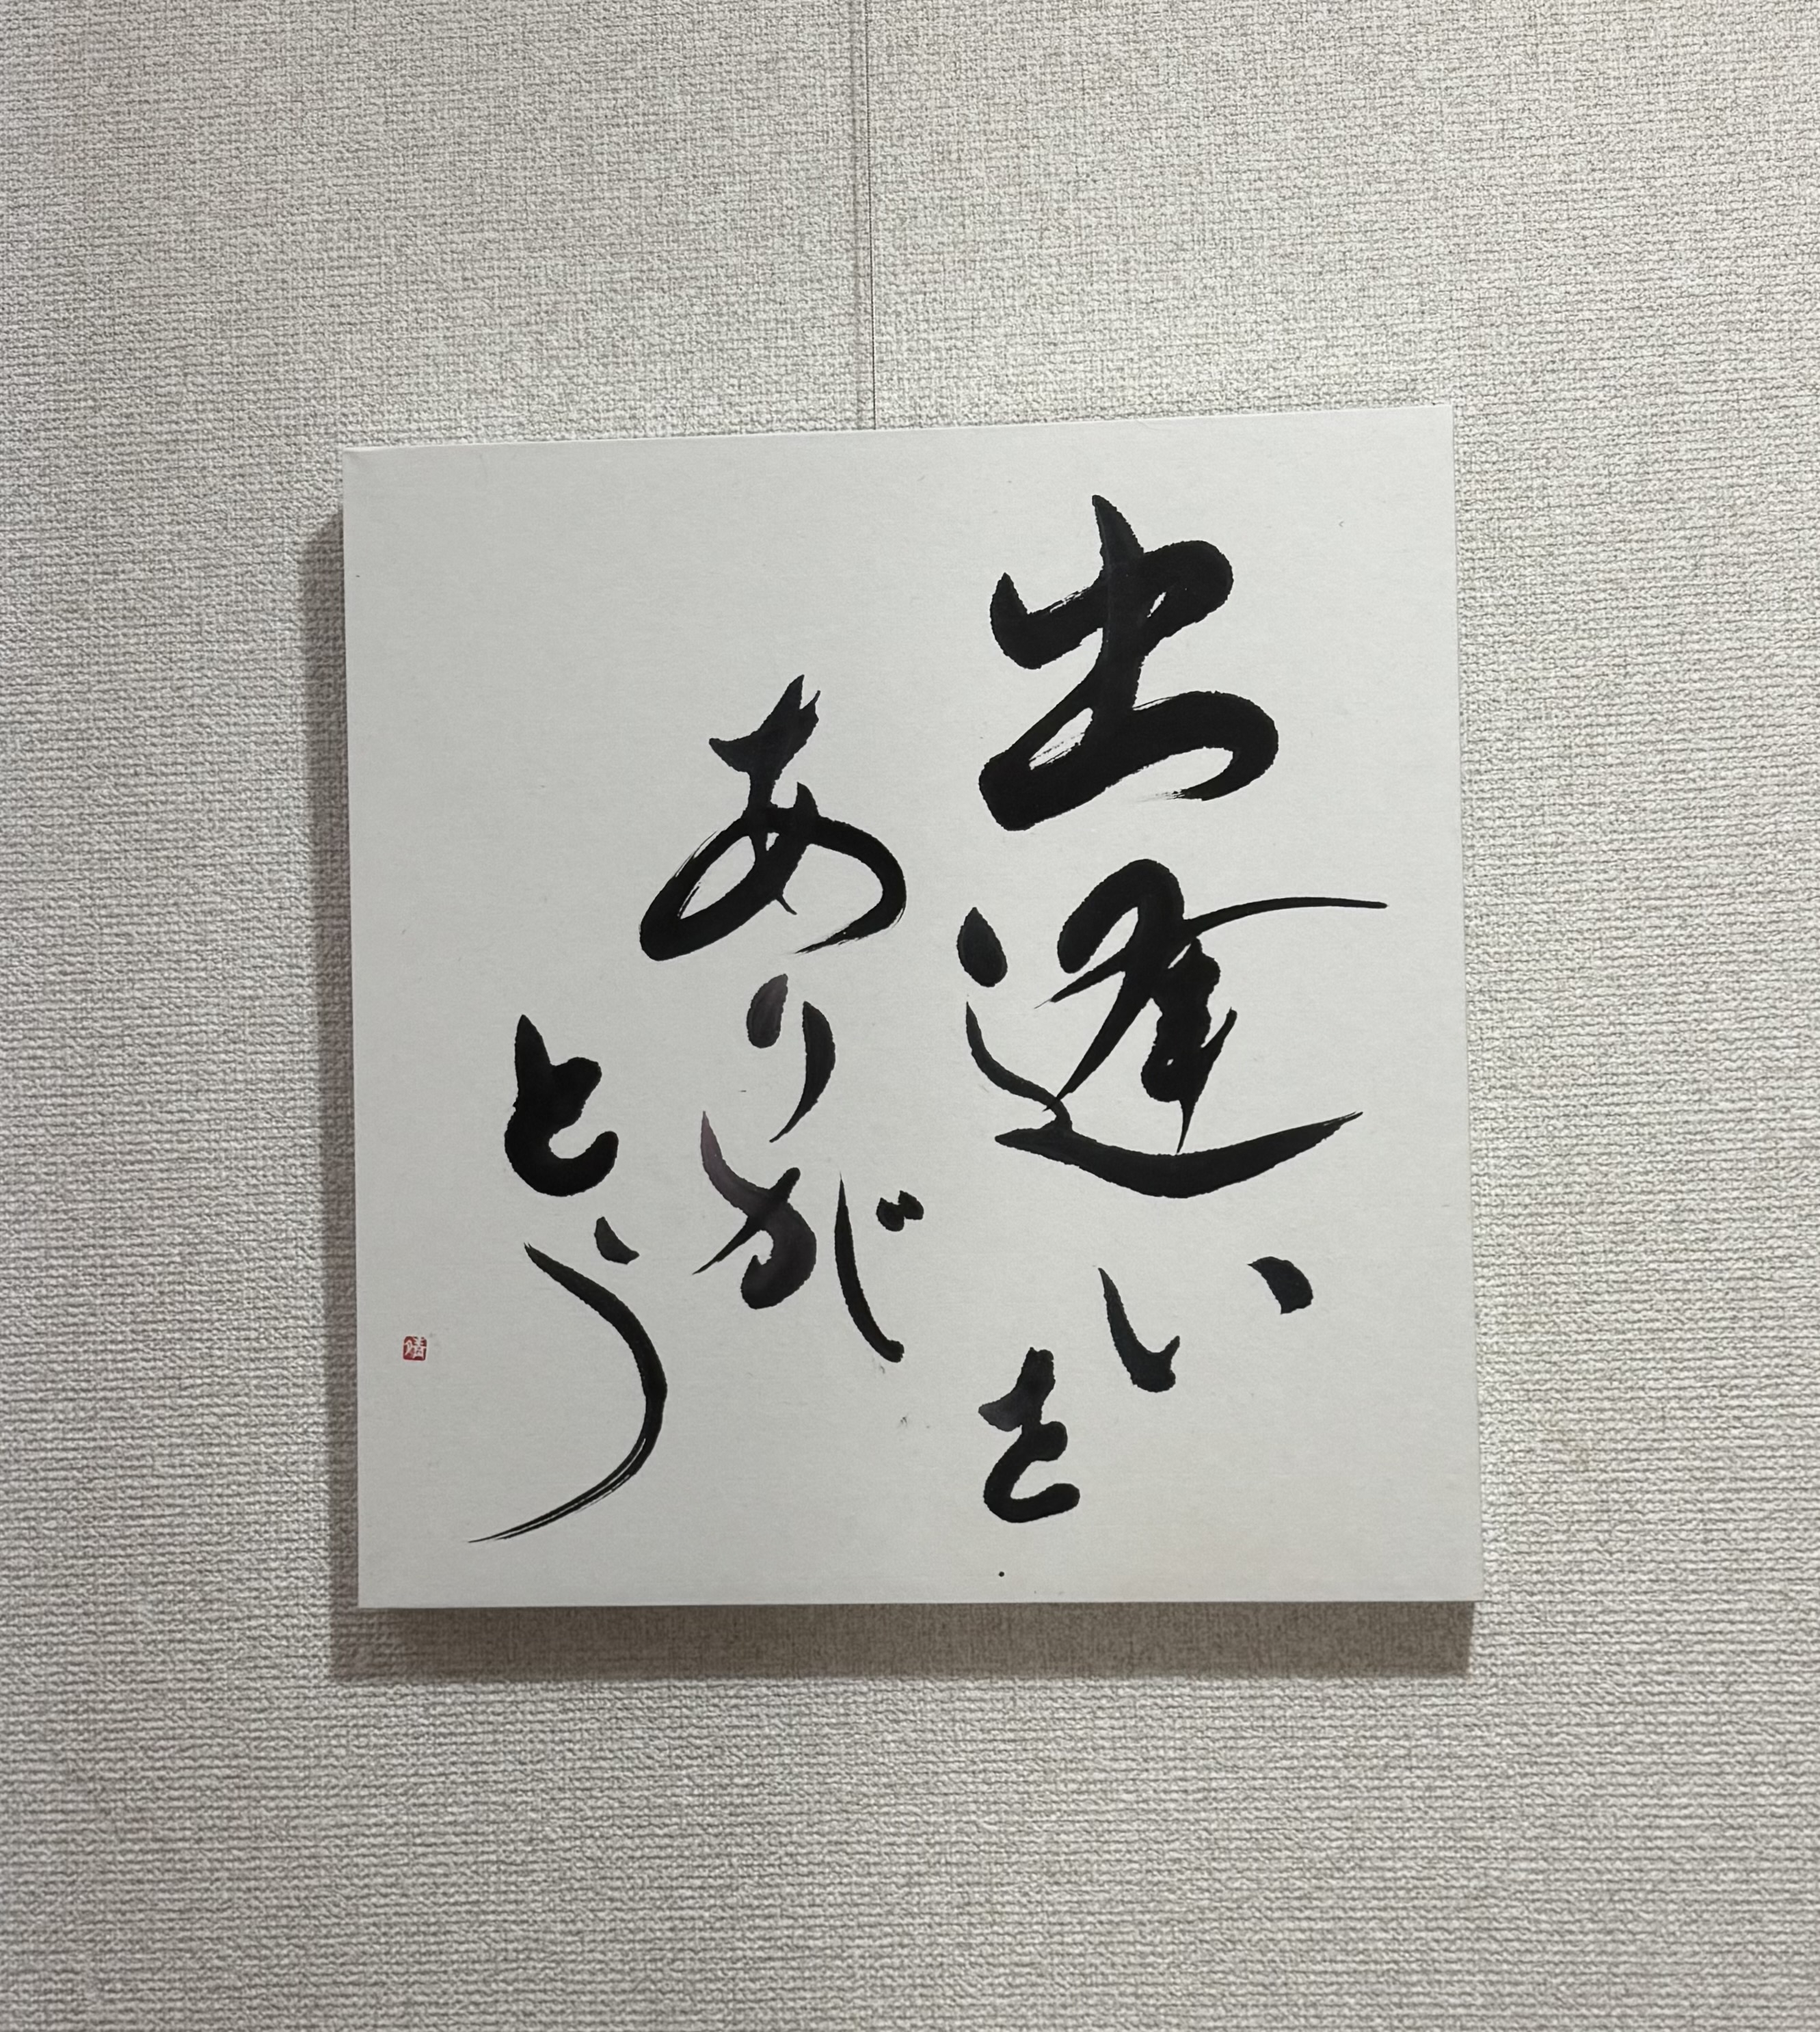 出逢いを
ありが
とう